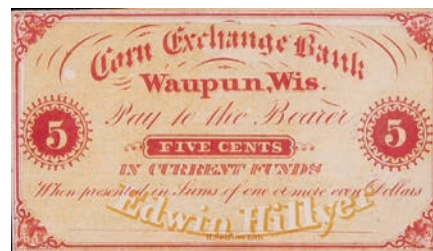 Corn Exchange Bank
Waupun, Wis.
Pay to the Bearer
5 FIVE CENTS 5
IN CURRENT FUNDS
When presented in Sums of one or more even Dollars
Edwin Hillyer